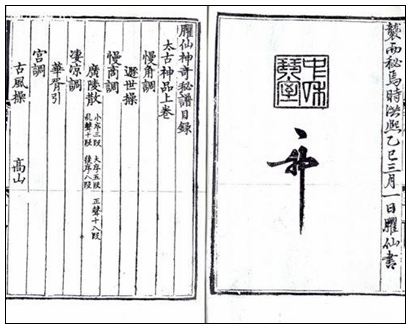 襲而秘焉時洪熙乙巳三月一日臞仙書
中和琴室
臞仙神奇秘譜目錄
太古神品上卷
慢角調
遯世操
慢商調
廣陵散 小序三段 大序五段 正聲十八段
亂聲十段 後序八段
凄凉調
華胥引
宮調
古風操 高山